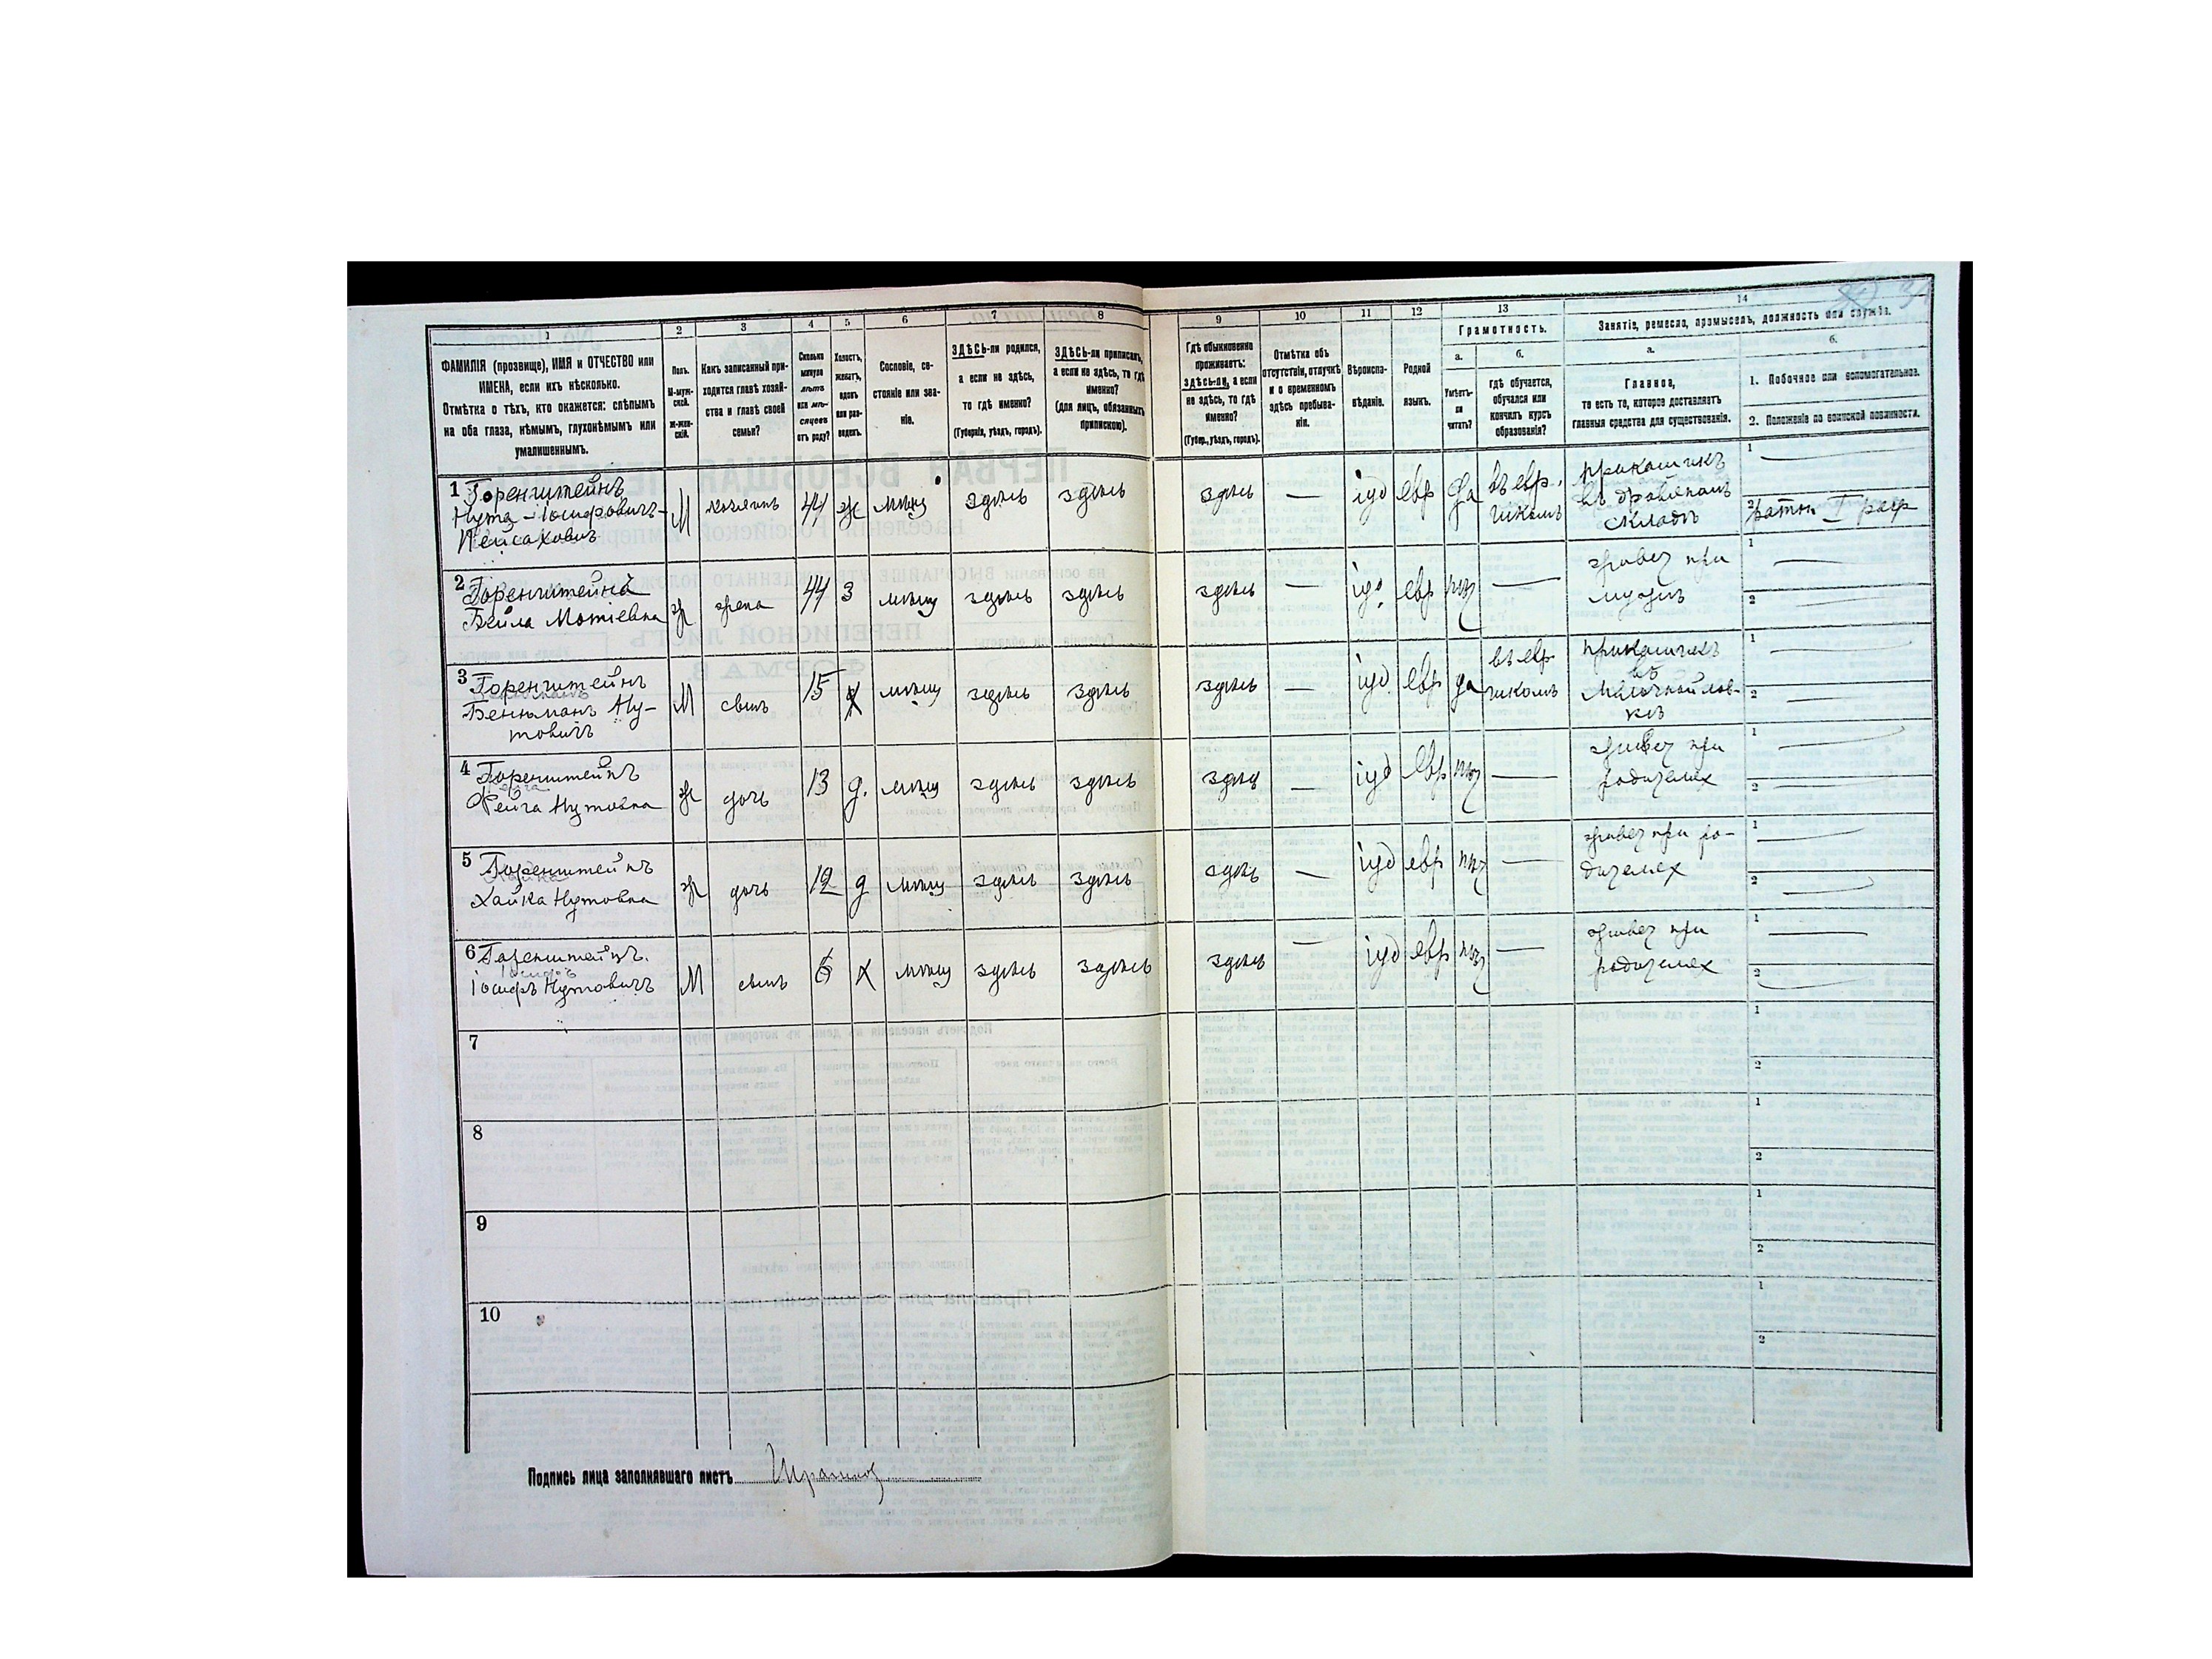 1 2 3 4 5 6 7 8 9 10 11 12 13 14
ФАМИЛІЯ (прозвище), ИМЯ и ОТЧЕСТВО или
ИМЕНА, если ихъ нѣсколько.
Отмѣтка о тѣхъ, кто окажется: слѣпымъ
на оба глаза, нѣмымъ, глухонѣмымъ или
умалишеннымъ.
Полъ.
М-муж-
ской.
ж-жен-
скій.
Какъ записанный при-
ходится главѣ хозяй-
ства и главѣ своей
семьи?
Сколько
минуло
лѣтъ
или мѣ-
сяцевъ
отъ роду?
Холостъ,
женатъ,
вдовъ
или раз-
веденъ.
Сословіе, со-
стояніе или зва-
ніе.
ЗДѢСЬ-ли родился,
а если не здѣсь,
то гдѣ именно?
(Губернія, уѣздъ, городъ).
ЗДѢСЬ-ли приписанъ,
а если не здѣсь, то гдѣ
именно?
(для лицъ, обязанныхъ
припискою).
Гдѣ обыкновенно
проживаетъ:
здѣсь-ли, а если
не здѣсь, то гдѣ
именно?
(Губер., уѣздъ, городъ).
Отмѣтка объ
отсутствіи, отлучкѣ
и о временномъ
здѣсь пребыва-
ніи.
Вѣроиспо-
вѣданіе.
Родной
языкъ.
Грамотность.
а.
Умѣетъ-
ли
читать?
б.
Гдѣ обучается,
обучался или
кончилъ курсъ
образованія?
Занятіе, ремесло, промыселъ, должность или служба.
а.
Главное,
то есть то, которое доставляетъ
главныя средства для существованія.
б.
1. Побочное или вспомогательное.
2. Положеніе по воинской повинности.
1 Горенштейнъ
Нута - Іосифовичъ-
Пейсаховичъ
М
хозяинъ
44
ж
мѣщ
здѣсь
здѣсь
здѣсь
—
іуд
евр
да
въ евр.
школѣ
прикащикъ
въ дровяномъ
складѣ
1
2 ратн I разр
2 Горенштейнъ
Бейла Мотіевна
ж
жена
44
З
мѣщ
здѣсь
здѣсь
здѣсь
—
іуд
евр
нѣт
—
живет при
мужѣ
1
2
3 Горенштейнъ
Беньманъ Ну-
товичъ
М
сынъ
15
х
мѣщ
здѣсь
здѣсь
здѣсь
—
іуд
евр
да
въ евр
школѣ
прикащикъ
въ
мелочной лав-
кѣ
1
2
4 Горенштейнъ
Фейга Нутовна
ж
дочь
13
д.
мѣщ
здѣсь
здѣсь
здѣсь
—
іуд
евр
нѣт
—
живет при
родителях
1
2
5 Горенштейнъ
Хайка Нутовна
ж
дочь
12
д
мѣщ
здѣсь
здѣсь
здѣсь
—
іуд
евр
нѣт
—
живет при ро-
дителях
1
2
6 Горенштейнъ.
Іосифъ Нутовичъ
М
сынъ
6
х
мѣщ
здѣсь
здѣсь
здѣсь
—
іуд
евр
нѣт
—
живет при
родителях
1
2
7
1
2
8
1
2
9
1
2
10
1
2
Подпись лица заполнявшаго листъ